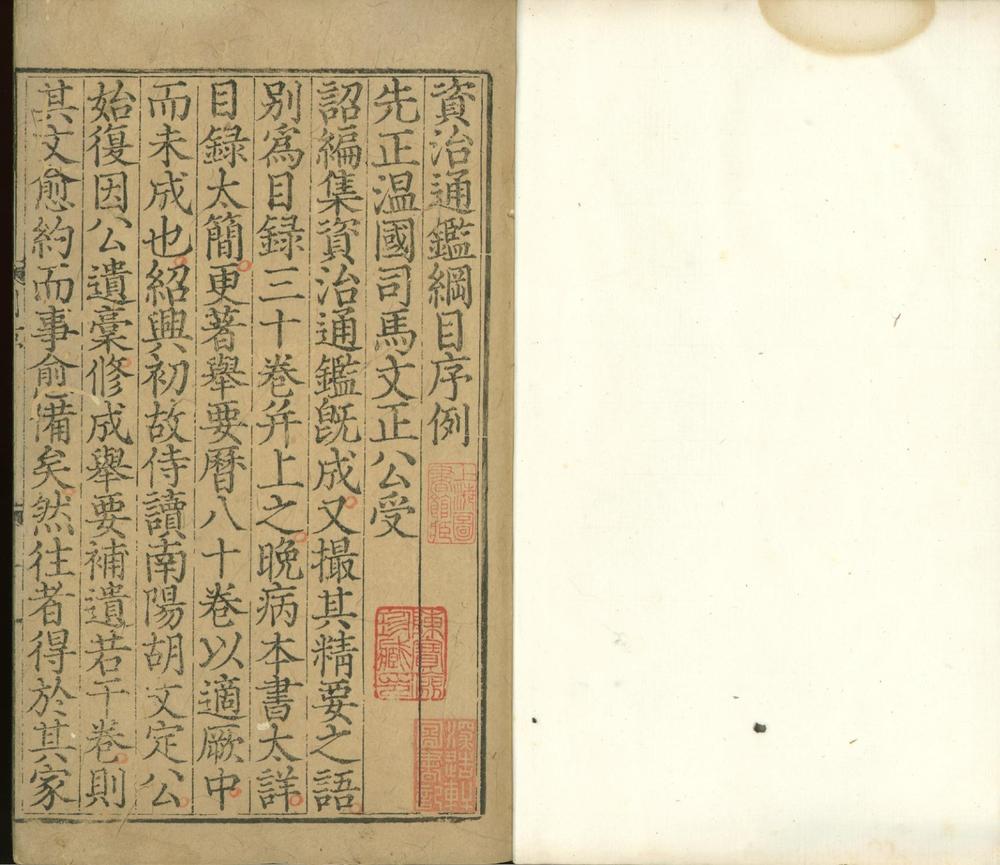 資治通鑑綱目序例
先正温國司馬文正公受
詔編集資治通鑑旣成又撮其精要之語
别爲目録三十卷并上之晚病本書太詳
目録太簡更著舉要曆八十卷以適厥中
而未成也紹興初故侍讀南陽胡文定公
始復因公遺稾修成舉要補遺若干卷則
其文愈約而事愈備矣然往者得於其家
上海圖書館藏